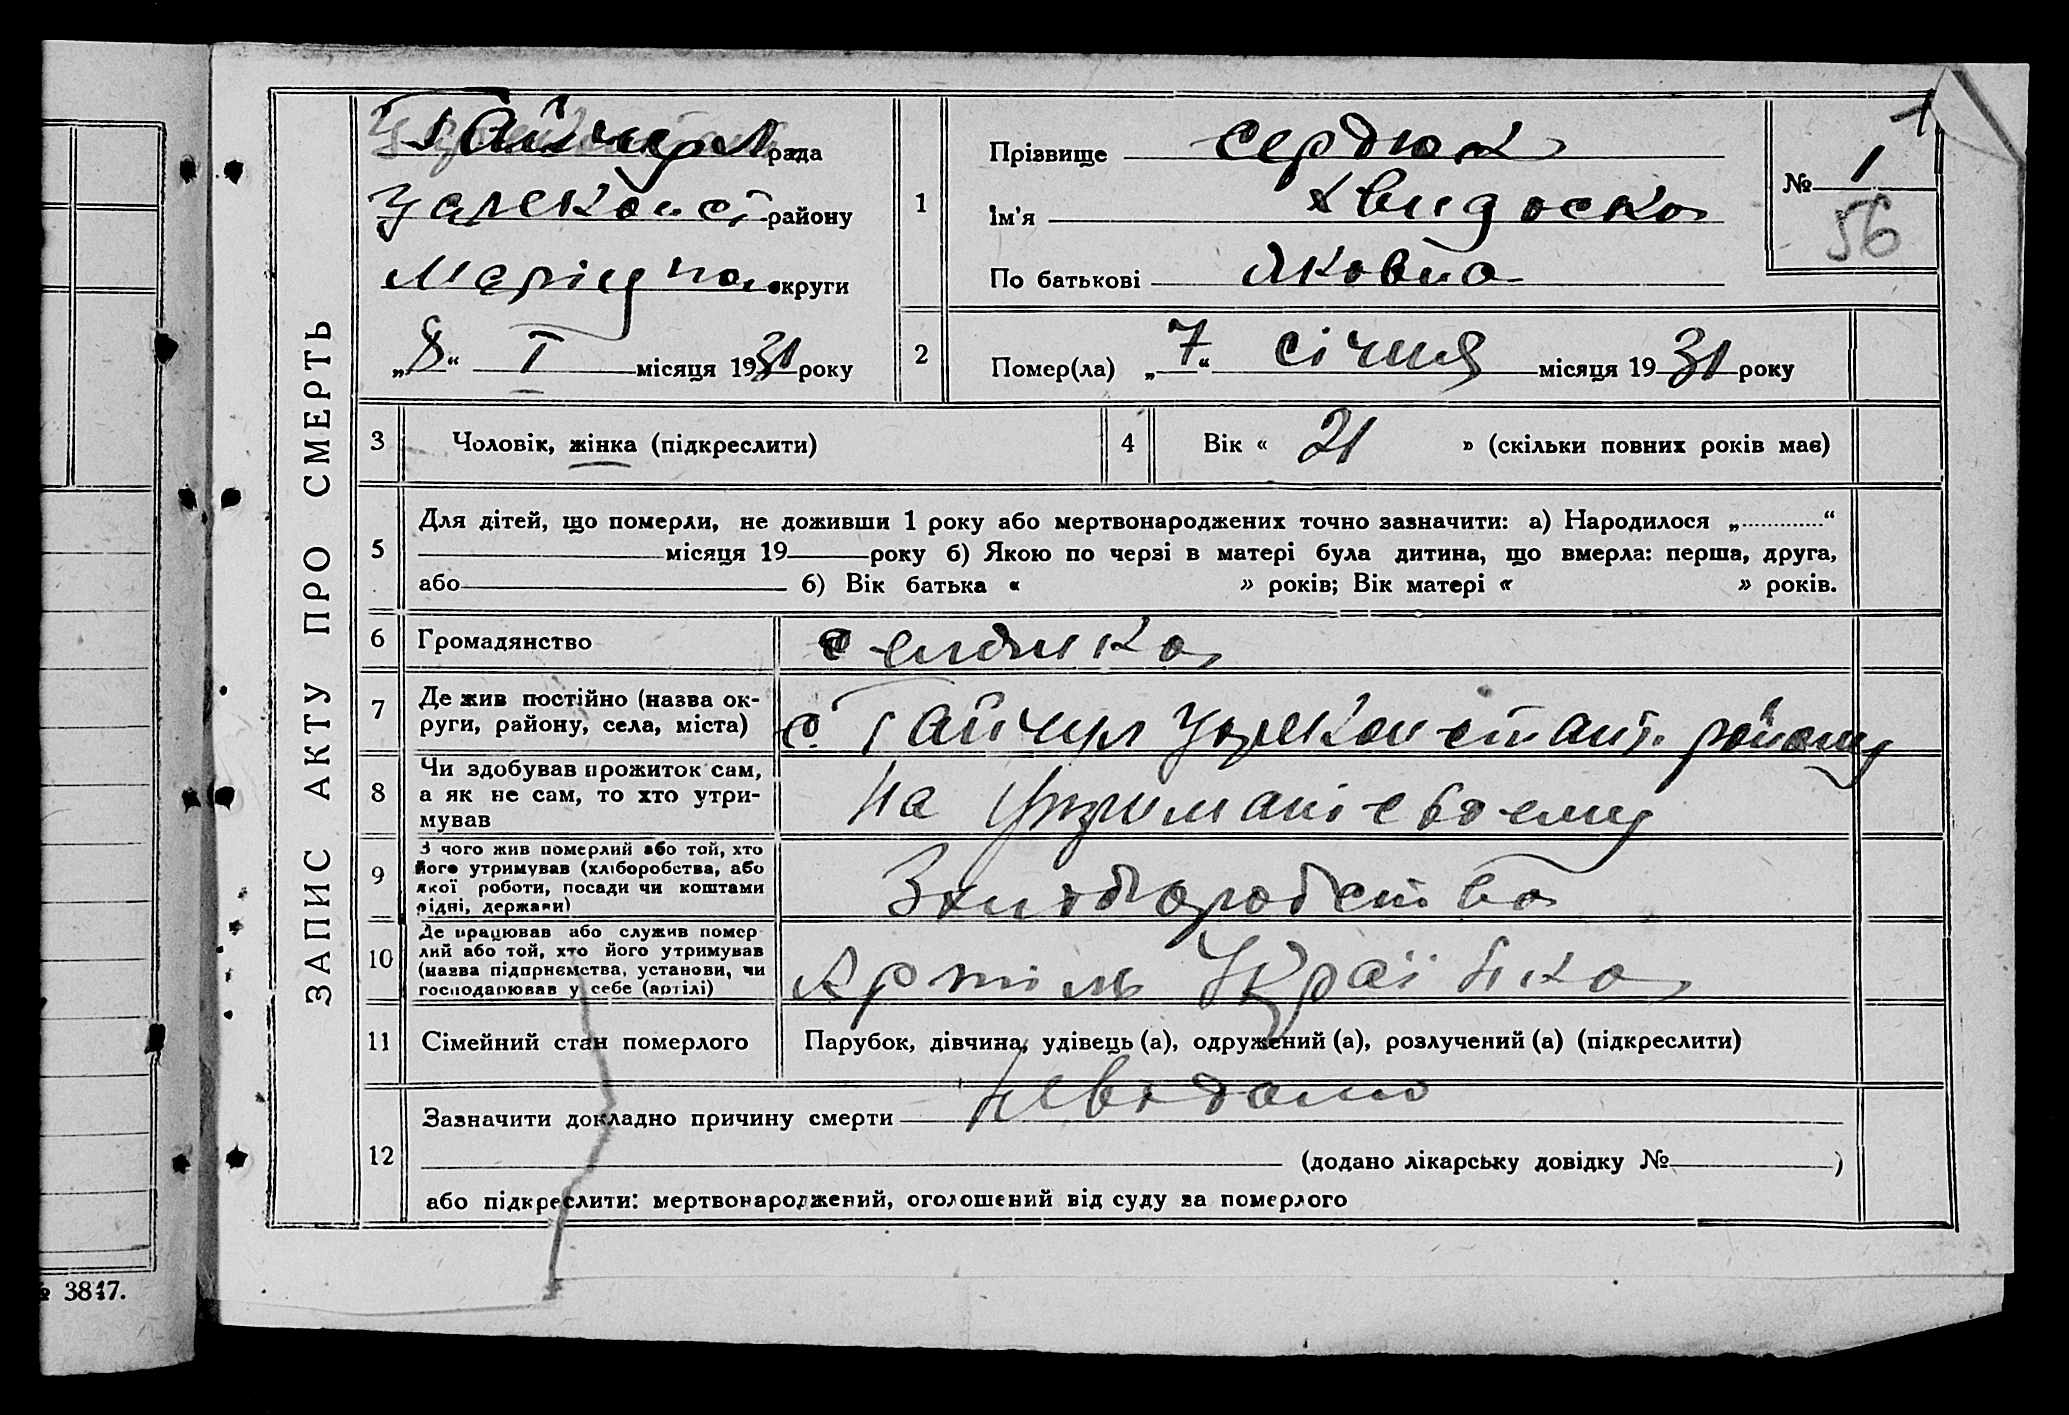 ЗАПИС АКТУ ПРО СМЕРТЬ
Гайчул рада
Цареконст району
Маріуп округи
„8“ I місяця 1931 року
1
Прізвище Сердюк
Ім'я Хвидоска
По батькові Яковна
№ 1
1
56
2
Помер(ла) „7“ січня місяця 1931 року
3
Чоловік, жінка (підкреслити)
4
Вік « 21 » (скільки повних років має)
5
Для дітей, що померли, не доживши 1 року або мертвонароджених точно зазначити: а) Народилося „ “
місяця 19 року б) Якою по черзі в матері була дитина, що вмерла: перша, друга,
або б) Вік батька « » років; Вік матері « » років.
6
Громадянство
селянка
7
Де жив постійно (назва ок-
руги, району, села, міста)
с. Гайчул Цареконстант. району
8
Чи здобував прожиток сам,
а як не сам, то хто утри-
мував
На утримані своему
9
З чого жив померлий або той, хто
його утримував (хліборобства, або
якої роботи, посади чи коштами
рідні, держави)
З хліборобства
10
Де працював або служив помер
лий або той, хто його утримував
(назва підприємства, установи, чи
господарював у себе (артілі)
Артіль Українка
11
Сімейний стан померлого
Парубок, дівчина, удівець (а), одружений (а), розлучений (а) (підкреслити)
12
Зазначити докладно причину смерти невідомо
(додано лікарську довідку № )
або підкреслити: мертвонароджений, оголошений від суду за померлого
№ 3817.